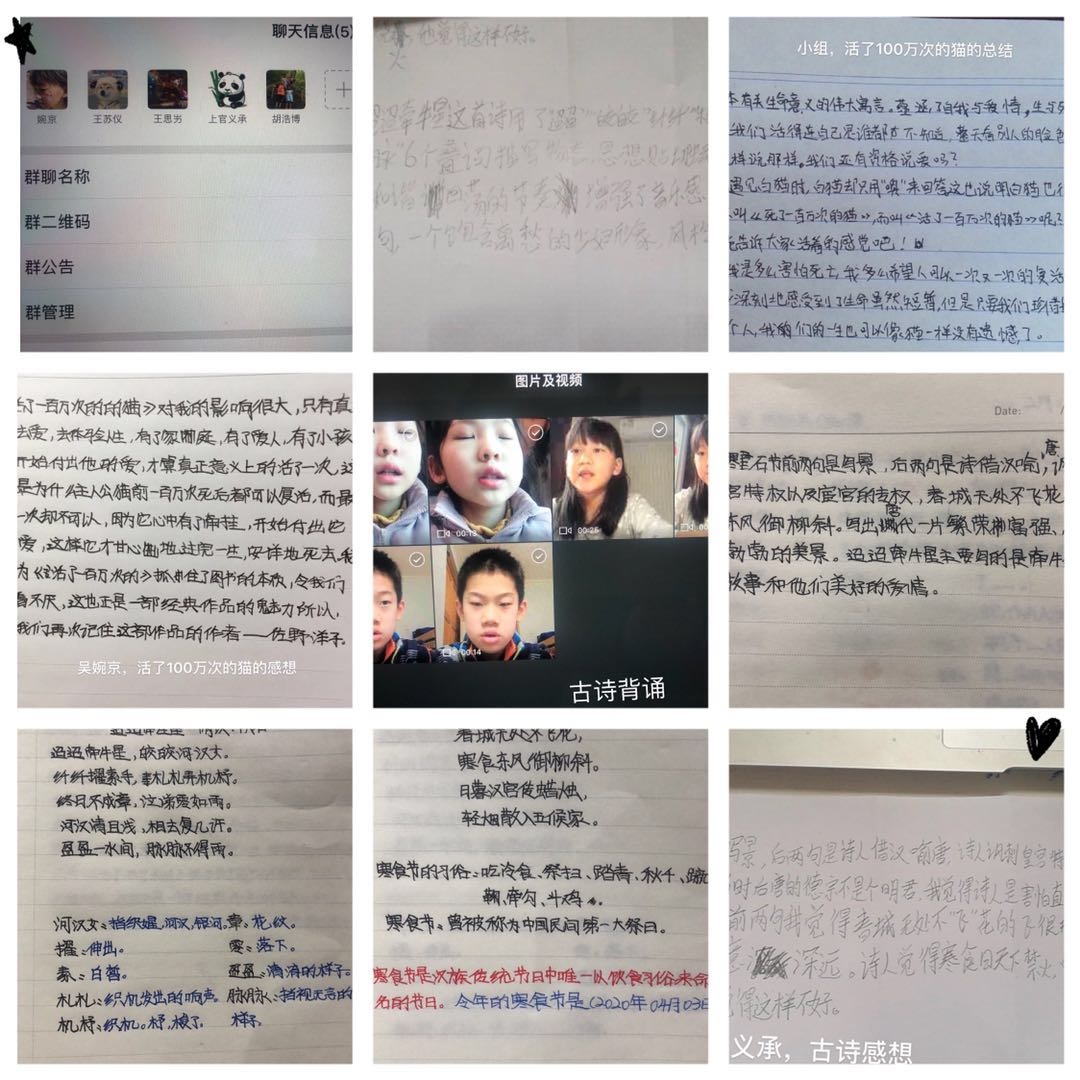 聊天信息(5)
婉京
王苏仪
王思为
上官义承
胡浩博
群聊名称
群二维码
群公告
群管理
他觉得这样不好。
火
迢牵牛星这首诗用了
6个叠词
的节奏
增强了音乐感
句,一个饱含离愁的少妇形象,风格
小组,活了100万次的猫的总结
本有关生命意义的伟大寓言。
了自我与爱情,生与死
我们活得连自己是谁都不知道,整天看别人的脸色
样说那样。我们还有资格说爱吗?
遇见白猫时,白猫却只用“噢”来回答这也说明白猫
叫《死了一百万次的猫》,而叫《活了一百万次的猫》呢?
告诉大家活着的感觉吧!
我是多么害怕死亡,我多么希望人可以一次又一次的复活
深刻地感受到了生命虽然短暂,但是只要我们珍惜
个人,我的们的一生也可以像猫一样没有遗憾了。
了一百万次的的猫》对我的影响很大,只有真
去爱,去体验人生,有了家庭,有了爱人,有了小孩
开始付出他的爱,才算真正意义上的活了一次。这
是为什么主人公猫前一百万次死后都可以复活,而最
一次却不可以,因为它心中有了牵挂,开始付出它
爱,这样它才甘心地过完一生,安详地死去。我
为《活了一百万次的》抓住了图书的本质,令我们
看不厌,这也正是一部经典作品的魅力所以,
我们再次记住这部作品的作者——佐野洋子。
吴婉京,活了100万次的猫的感想
图片及视频
00:13
00:25
00:14
古诗背诵
Date:
前两句是写景,后两句是诗借汉喻唐,
特权以及宦官的专权,春城无处不飞花
东风御柳斜。写出唐代一片繁荣和富强,
勃勃的美景。迢迢牵牛星主要写的是牵牛
故事和他们美好的爱情。
迢迢牵牛星,皎皎河汉女。
纤纤擢素手,札札弄机杼。
终日不成章,泣涕零如雨。
河汉清且浅,相去复几许。
盈盈一水间,脉脉不得语。
河汉女:指织女星,河汉,银河。章:花纹。
擢:伸出。 零:落下。
素:白皙。 盈盈:清清的样子。
札札:织机发出的响声。脉脉:指视无言的
机杼:织机。杼,梭子。 样子
春城无处不飞花,
寒食东风御柳斜。
日暮汉宫传蜡烛,
轻烟散入五侯家。
寒食节的习俗:吃冷食、祭扫、踏青、秋千、蹴
鞠、牵勾、斗鸡。
寒食节:曾被称为中国民间第一大祭日。
寒食节是汉族传统节日中唯一以饮食习俗来命
名的节日。今年的寒食节是(2020年04月03日
写景,后两句是诗人借汉喻唐,诗人讽刺皇宫特
时后唐的德宗不是个明君,我觉得诗人是害怕直
前两句我觉得春城无处不“飞”花的飞很
意深远。诗人觉得寒食日天下禁火,
觉得这样不好。
义承,古诗感想